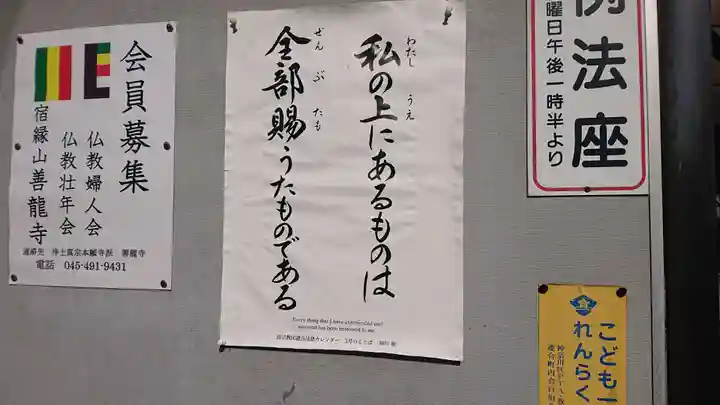 会員募集
仏教婦人会
仏教壮年会
宿縁山善龍寺
連絡先 浄土真宗本願寺派 善龍寺
電話 045-491-9431
私の上にあるものは
わたし うえ
全部賜うたものである
ぜんぶ たも
Every thing that I have experienced and
received has been bestowed to me.
例法座
曜日午後一時半より
こども
れんらく